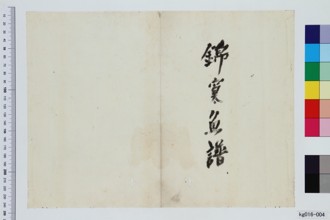 錦窠魚譜
kg016-004